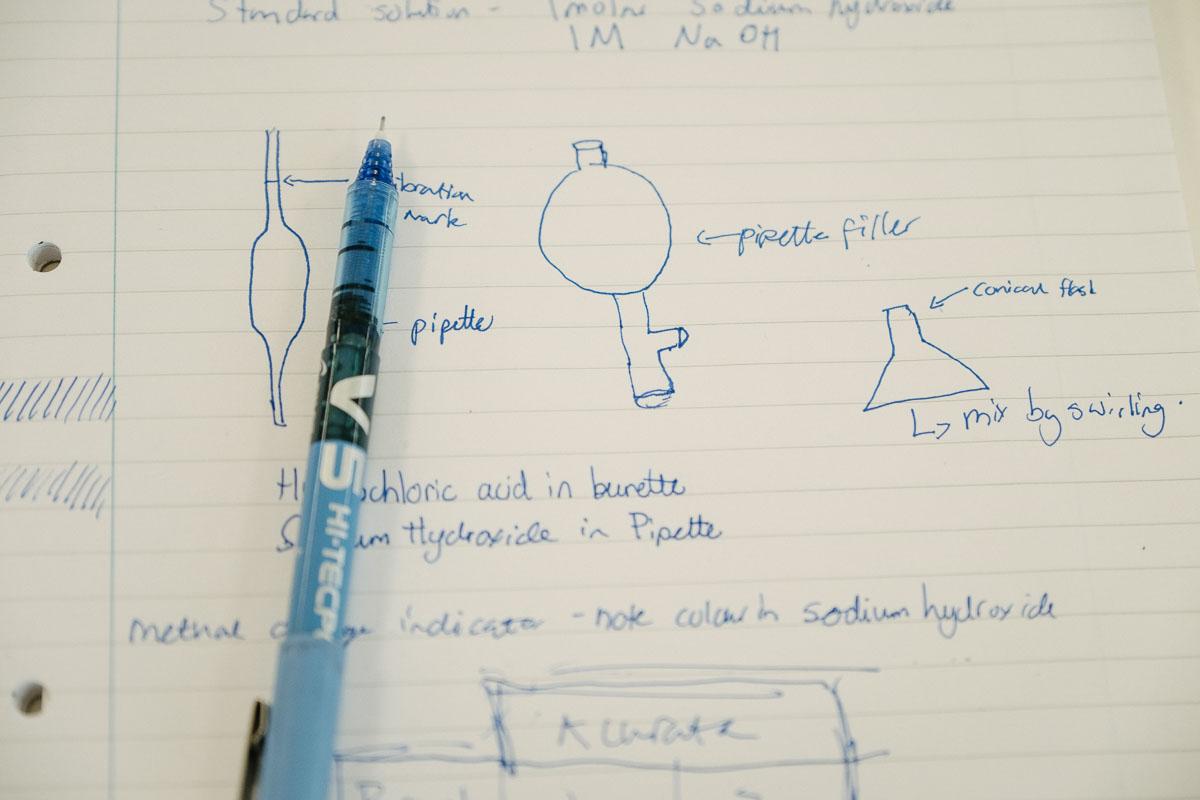 Standard solution - 1 molar Sodium hydroxide
1M NaOH
ibration
mark
pipette
pipette filler
conical flask
mix by swirling.
H ochloric acid in burette
S um Hydroxide in Pipette
indicator - note colour in sodium hydroxide
Accurate
V5 HI-TECP